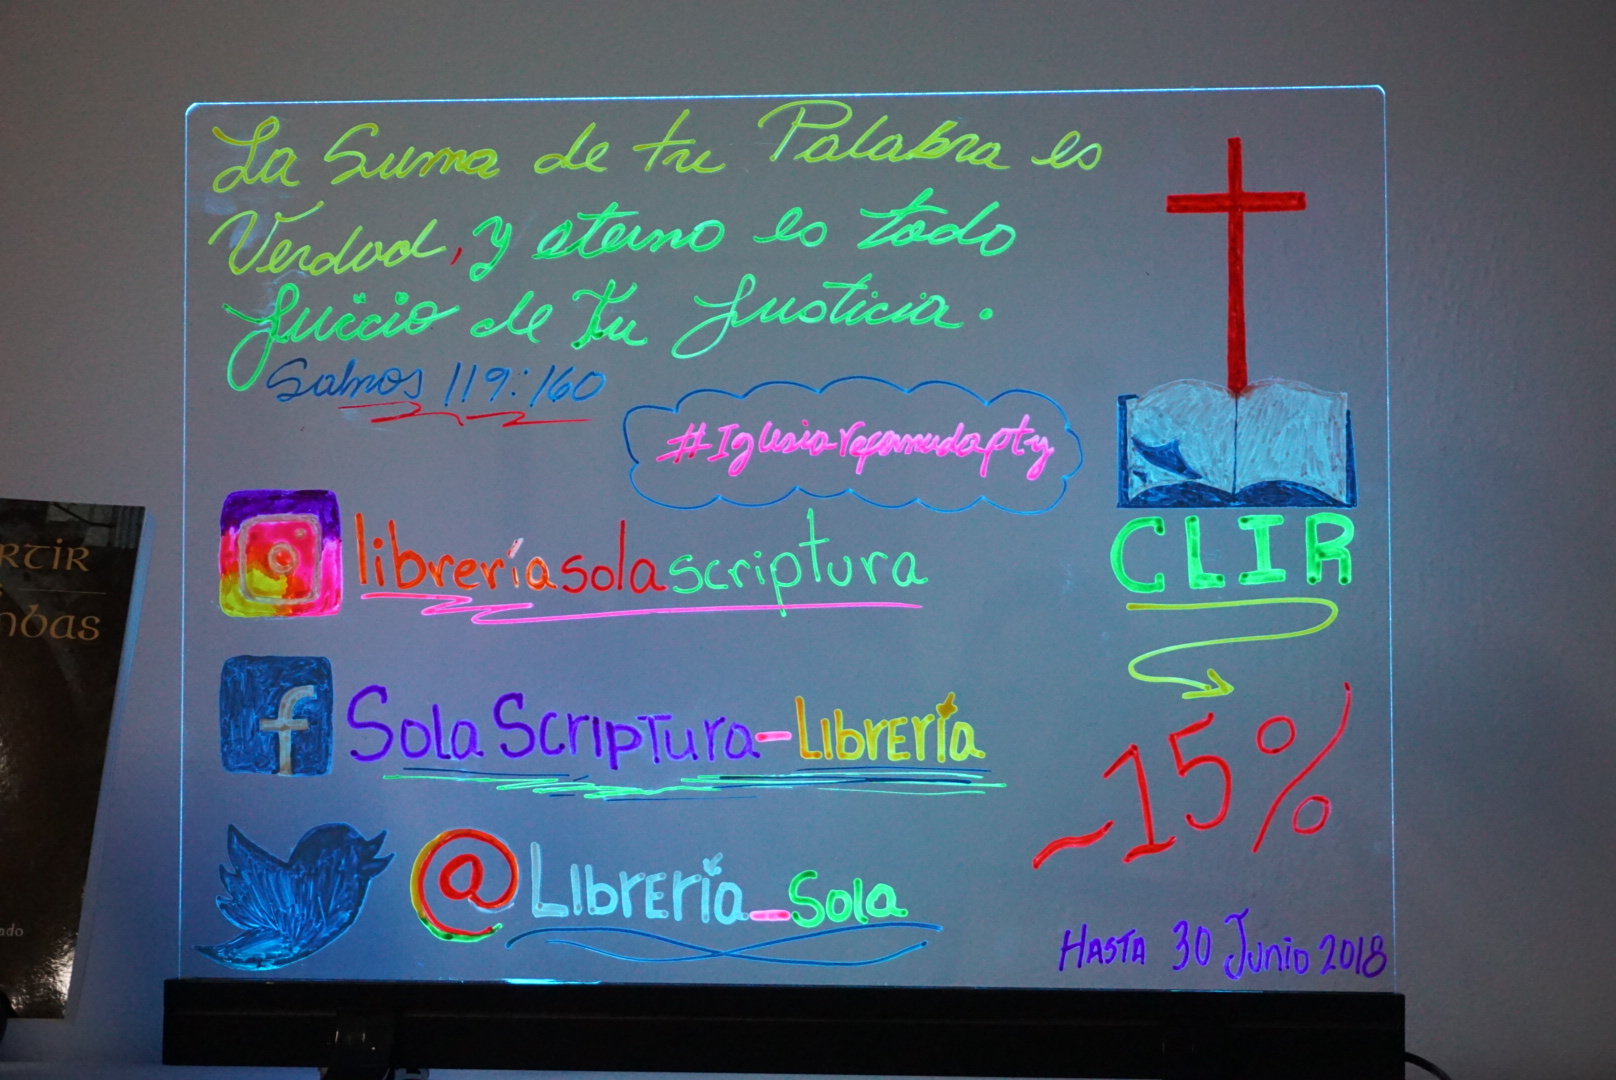 La Suma de tu Palabra es
Verdad, y eterno es todo
Juicio de Tu Justicia.
Salmos 119:160
#Iglesiareformadapty
libreríasolascriptura
Sola Scriptura-Librería
@Librería_Sola
CLIR
-15%
HASTA 30 Junio 2018
RTIR
ado